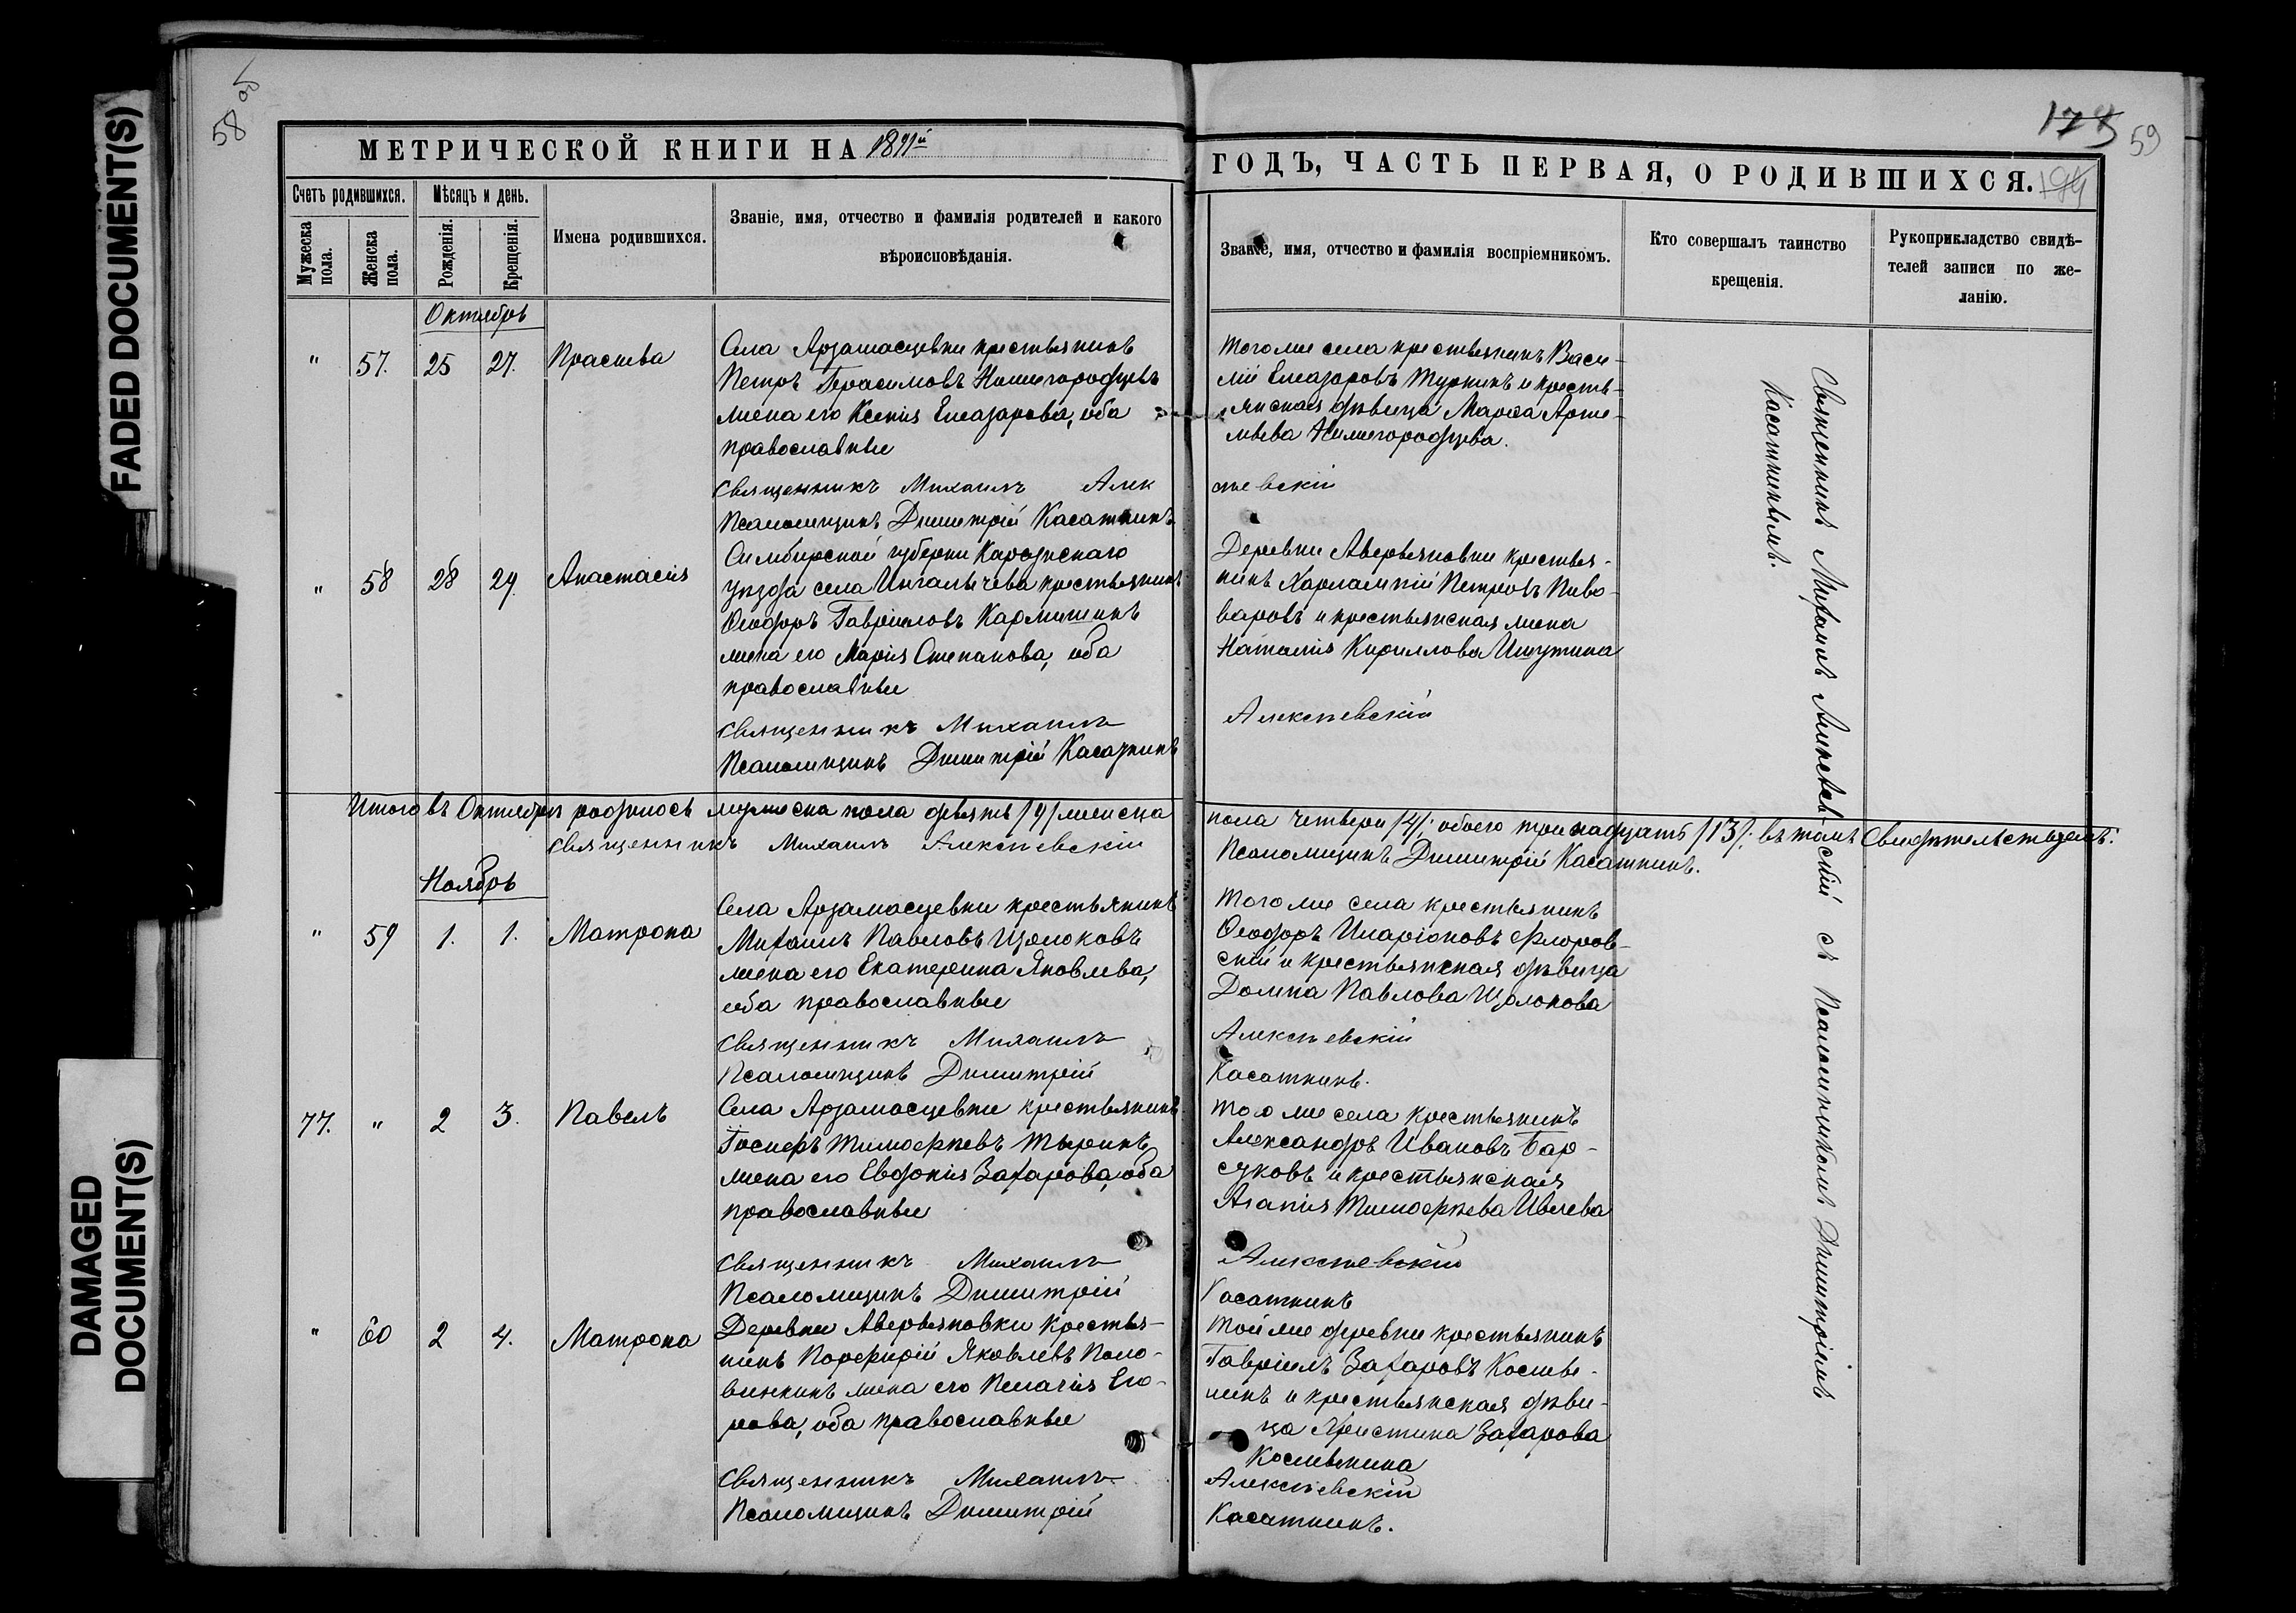 FADED DOCUMENT(S)
DAMAGED
DOCUMENT(S)
58 об
МЕТРИЧЕСКОЙ КНИГИ НА 1891й
Счетъ родившихся.
Мѣсяцъ и день.
Имена родившихся.
Званіе, имя, отчество и фамилія родителей и какого
вѣроисповѣданія.
Мужеска
пола.
Женска
пола.
Рожденія.
Крещенія.
Октябрь
" 57. 25 27. Праскева
Села Арзамасцевки крестьянинъ
Петръ Герасимовъ Нижегородцевъ
жена его Ксенія Елеазарова, оба
православные
Священникъ Михаилъ Алек
Псаломщикъ Димитрій Касаткинъ
" 58 28 29. Анастасія
Симбирской губерніи Карсунскаго
уѣзда села крестьянинъ
Ѳеодоръ Гавріиловъ
жена его Марія Степанова, оба
православные
Священникъ Михаилъ
Псаломщикъ Димитрій Касаткинъ
Итого въ Октябрѣ родилось мужеска пола девять /9/ женска
Священникъ Михаилъ Алексѣевскій
Ноябрь
" 59 1. 1. Матрона
Села Арзамасцевки крестьянинъ
Михаилъ Павловъ Щолоковъ
жена его Екатерина Яковлева,
оба православные
Священникъ Михаилъ
Псаломщикъ Димитрій
77. " 2 3. Павелъ
Села Арзамасцевки крестьянинъ
Іосифъ Тимоѳеевъ Тыринъ
жена его Евдокія Захарова, оба
православные
Священникъ Михаилъ
Псаломщикъ Димитрій
" 60 2 4. Матрона
Деревни Аверьяновки крестья-
нинъ Порфирій Яковлевъ Поло-
винкинъ жена его Пелагія Его-
рова, оба православные
Священникъ Михаилъ
Псаломщикъ Димитрій
59
194
ГОДЪ, ЧАСТЬ ПЕРВАЯ, О РОДИВШИХСЯ.
Званіе, имя, отчество и фамилія воспріемникомъ.
Кто совершалъ таинство
крещенія.
Рукоприкладство свидѣ-
телей записи по же-
ланію.
Того же села крестьянинъ Васи-
лій Елеазаровъ Туркинъ и кресть-
янская дѣвица Марѳа Арте-
мьева Нижегородцева.
сѣевскій
Деревни Аверьяновки крестья-
нинъ Харлампій Петровъ Пиво-
варовъ и крестьянская жена
Наталія Кириллова Ишутина
Алексѣевскій
пола четверо /4/; обоего тринадцать /13/; въ томъ Свидѣтельствуемъ:
Псаломщикъ Димитрій Касаткинъ.
Того же села крестьянинъ
Ѳеодоръ Иларіоновъ Флоров-
скій и крестьянская дѣвица
Домна Павлова Щолокова
Алексѣевскій
Касаткинъ.
Того же села крестьянинъ
Александръ Ивановъ Бар-
суковъ и крестьянская
Агапія Тимоѳеева Ивлева
Алексѣевскій
Касаткинъ
Той же деревни крестьянинъ
Гавріилъ Захаровъ
и крестьянская дѣви-
ца Христина Захарова
Алексѣевскій
Касаткинъ.
Священникъ Михаилъ Алексѣевскій съ Псаломщикомъ Димитріемъ
Касаткинымъ.